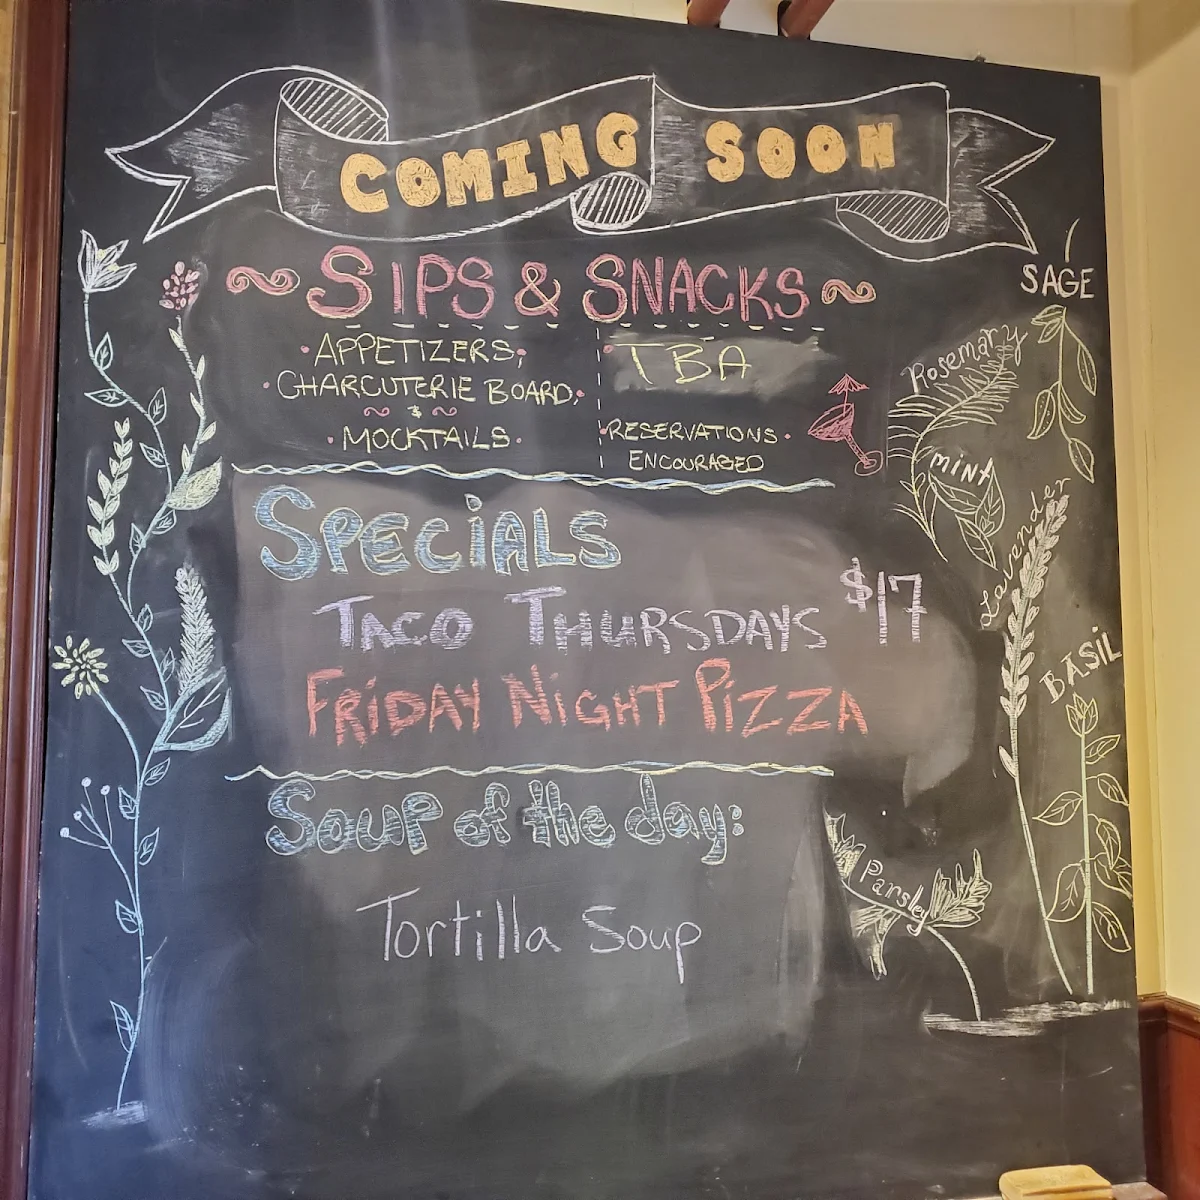 COMING SOON
SIPS & SNACKS
APPETIZERS,
CHARCUTERIE BOARD,
&
MOCKTAILS
TBA
RESERVATIONS
ENCOURAGED
SPECiALS
TACO THURSDAYS $17
FRiDAY NiGHT PiZZA
Soup of the day:
Tortilla Soup
SAGE
Rosemary
mint
Lavender
BASIL
Parsley